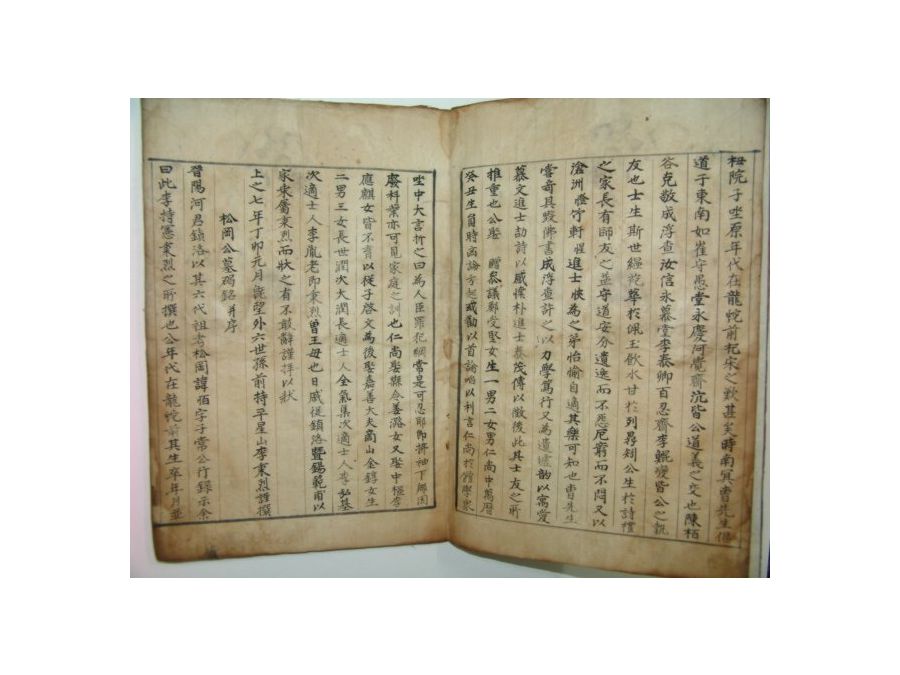 枢院子坐原年代在龍蛇前杞宋之歎甚矣時南冥曺先生倡
道于東南如崔守愚堂永慶河覺齋沆皆公道義之交也陳栢
谷克敬成浮査汝信永慕堂李泰卿百忍齋李鯤變皆公之執
友也士生斯世縕袍華於佩玉飮水甘於列鼎矧公生於詩禮
之家長有師友之益守道安分遺逸而不怨阨窮而不悶又以
滄洲燈竹軒惺進士悏為之弟怡愉自適其樂可知也曺先生
嘗奇其毁佛書成浮査許之以力學篤行又為遺墟韵以寓愛
慕文進士劼詩以感懷朴進士泰茂傳以徵後此其士友之所
推重也公娶 贈叅議鄭受堅女生一男二女男仁尚中萬曆
癸丑生員時凶論方起或勸以首論啗以利言仁尚於館學衆
坐中大言折之曰為人臣罪犯綱常是可忍耶即拂袖下鄕因
廢科業亦可見家庭之訓也仁尚娶縣令姜潞女又娶中樞李
應麒女皆不育以從子啓文為後娶嘉善大夫商山金錞女生
二男三女長世潤次大潤長適士人金氣集次適士人李弘基
次適士人李胤老即秉烈曾王母也日戚從鎮洛曁錫範甫以
家乘屬秉烈而狀之有不敢辭謹撰以狀
上之七年丁卯元月旣望外六世孫前持平星山李秉烈謹撰
松岡公墓碣銘 并序
晉陽河君鎮洛以其六代祖考松岡諱恒字子常公行錄示余
曰此李持憲秉烈之所撰也公年代在龍蛇前其生卒年月並